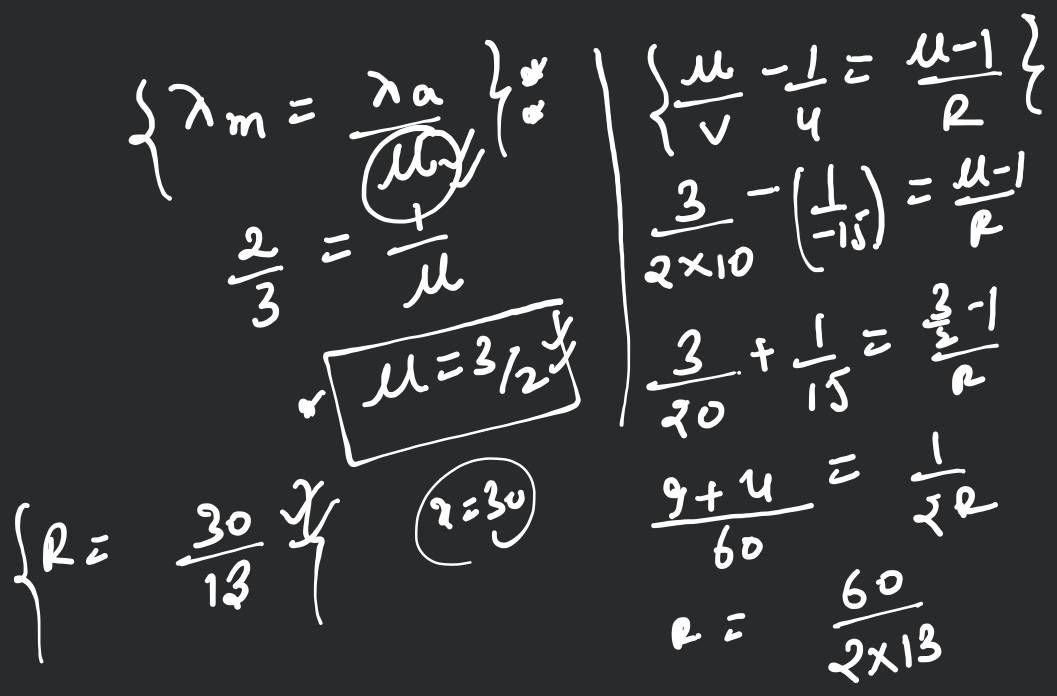 {λm = λa/μ}
2/3 = 1/μ
μ = 3/2
{R = 30/13}
x = 30
{μ/v - 1/u = μ-1/R}
3/2×10 - (1/-15) = μ-1/R
3/20 + 1/15 = 3/2 -1/R
9+4/60 = 1/2R
R = 60/2×13